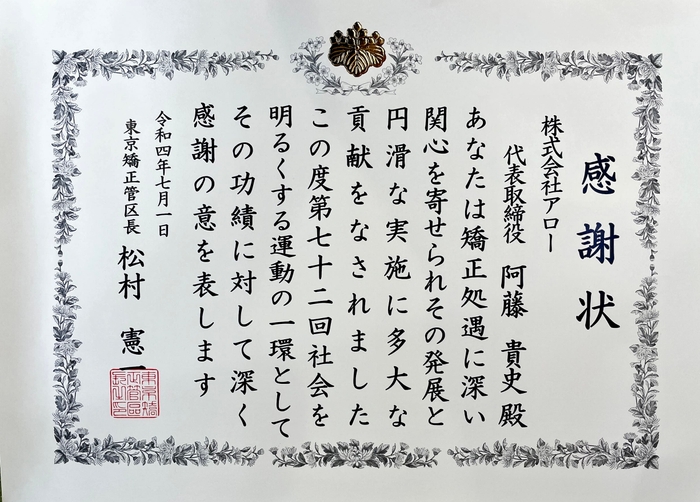 感謝状
株式会社アロー
代表取締役 阿藤 貴史 殿
あなたは矯正処遇に深い
関心を寄せられその発展と
円滑な実施に多大な
貢献をなされました
この度第七十二回社会を
明るくする運動の一環として
その功績に対して深く
感謝の意を表します
令和四年七月一日
東京矯正管区長 松村 憲一
東京矯
正管區
長之印